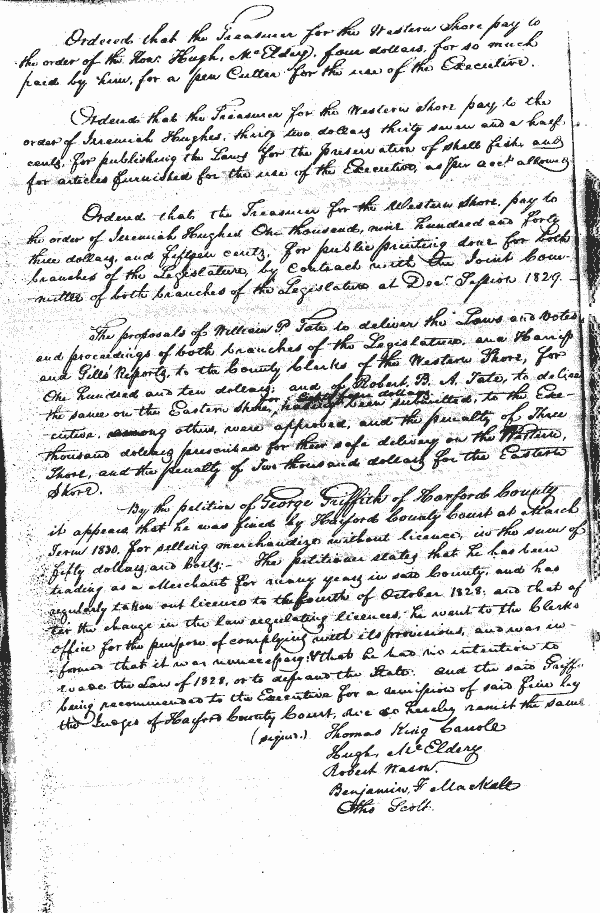 Ordered that the Treasurer for the Western Shore pay to
the order of the Honl. Hugh McEldery, four dollars, for so much
paid by him, for a pen Cutter for the use of the Executive.
Ordered that the Treasurer for the Western Shore pay to the
order of Jeremiah Hughes, thirty two dollars thirty seven and a half
cents, for publishing the Laws for the preservation of shell fish and
for articles furnished for the use of the Executive, as per acct. allowed
Ordered that the Treasurer for the Western Shore, pay to
the order of Jeremiah Hughes One thousand, nine hundred and forty
three dollars, and fifteen cents, for public printing done for both
branches of the Legislature, by contract with the Joint Com-
mittee of both branches of the Legislature at Decr. Session 1829.
The proposals of William P Tate to deliver the Laws and Votes
and proceedings of both branches of the Legislature, and Harris
and Gills' Reports, to the County Clerks of the Western Shore, for
One hundred and ten dollars; and of Robert B. A. Tate, to deliver
the same on the Eastern Shore, for dollars having been submitted, to the Exe-
cutive, among others, were approved, and the penalty of Three
thousand dollars prescribed for their safe delivery on the Western,
Shore, and the penalty of Two thousand dollars for the Eastern
Shore.
By the petition of George Griffith of Harford County
it appears that he was fined by Harford County Court at March
Term 1830, for selling merchandize without licence, in the sum of
fifty dollars, and Costs;- The petitioner states that he has been
trading as a Merchant for many years in said County, and has
regularly taken out licence to the fourth of October 1828; and that af
ter the change in the law regulating licences, he went to the Clerks
office for the purpose of complying with its provisions, and was in-
formed that it was unnecessary & that he had no intention to
evade the Law of 1828, or to defraud the State: and the said Griff.
being recommended to the Executive for a remission of said fine by
the Judges of Harford County Court, we do hereby remit the same
(signed.) Thomas King Carroll
Hugh McEldery
Robert Wason.
Benjamin F Mackall
Otho Scott.